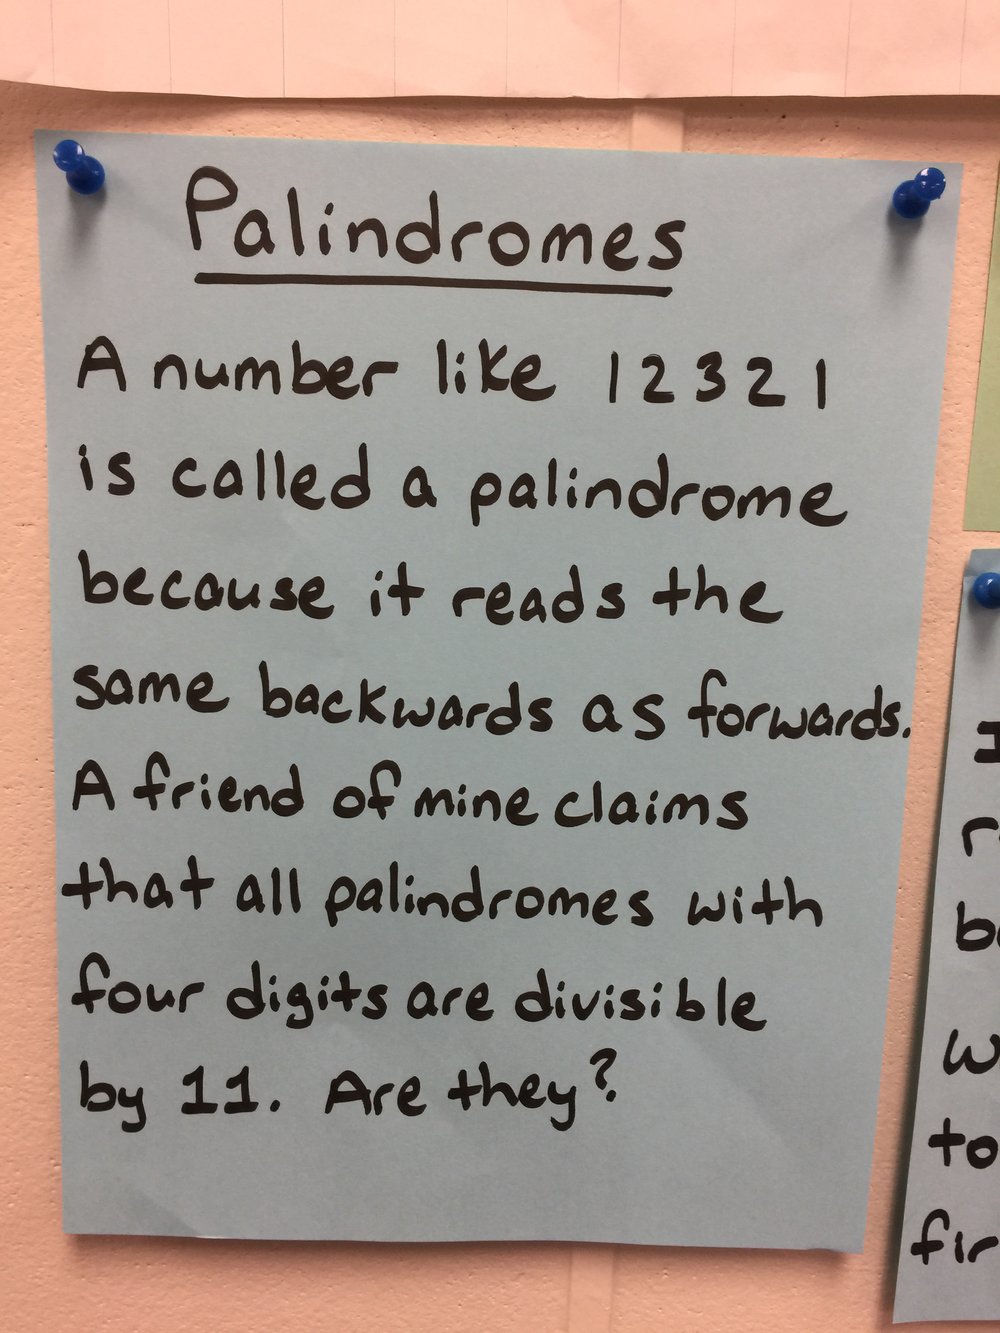 Palindromes
A number like 12321
is called a palindrome
because it reads the
same backwards as forwards.
A friend of mine claims
that all palindromes with
four digits are divisible
by 11. Are they?
to